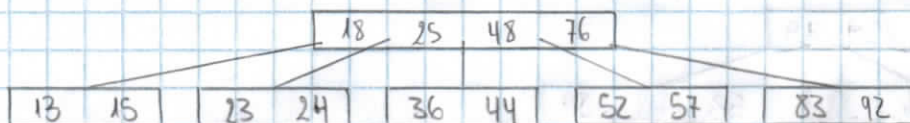 18 25 48 76
13 15 23 24 36 44 52 57 83 92